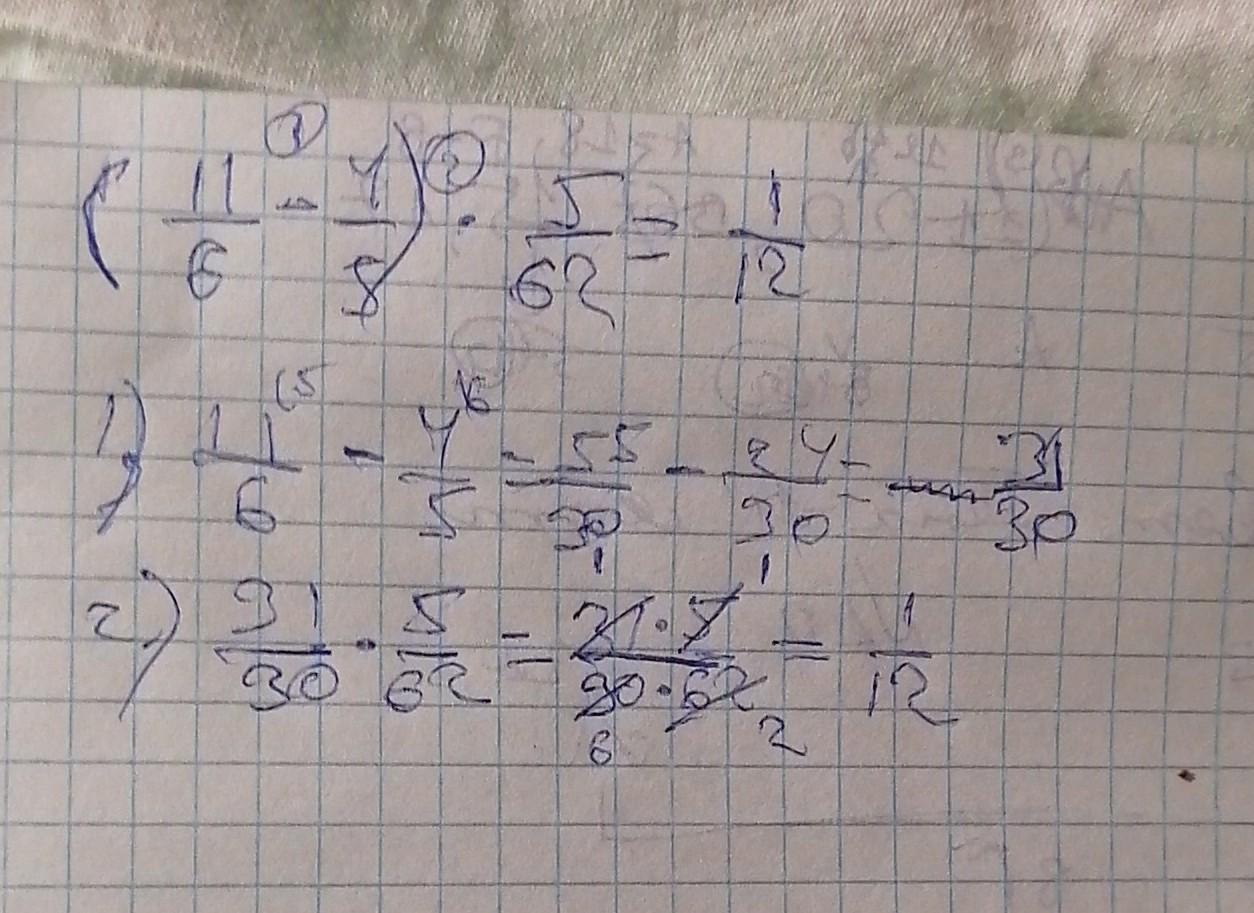 ( 11/6 - 4/5 ) · 5/62 = 1/12
1) 11/6 - 4/5 = 55/30 - 24/30 = 31/30
2) 31/30 · 5/62 = 31·5/30·62 = 1/12